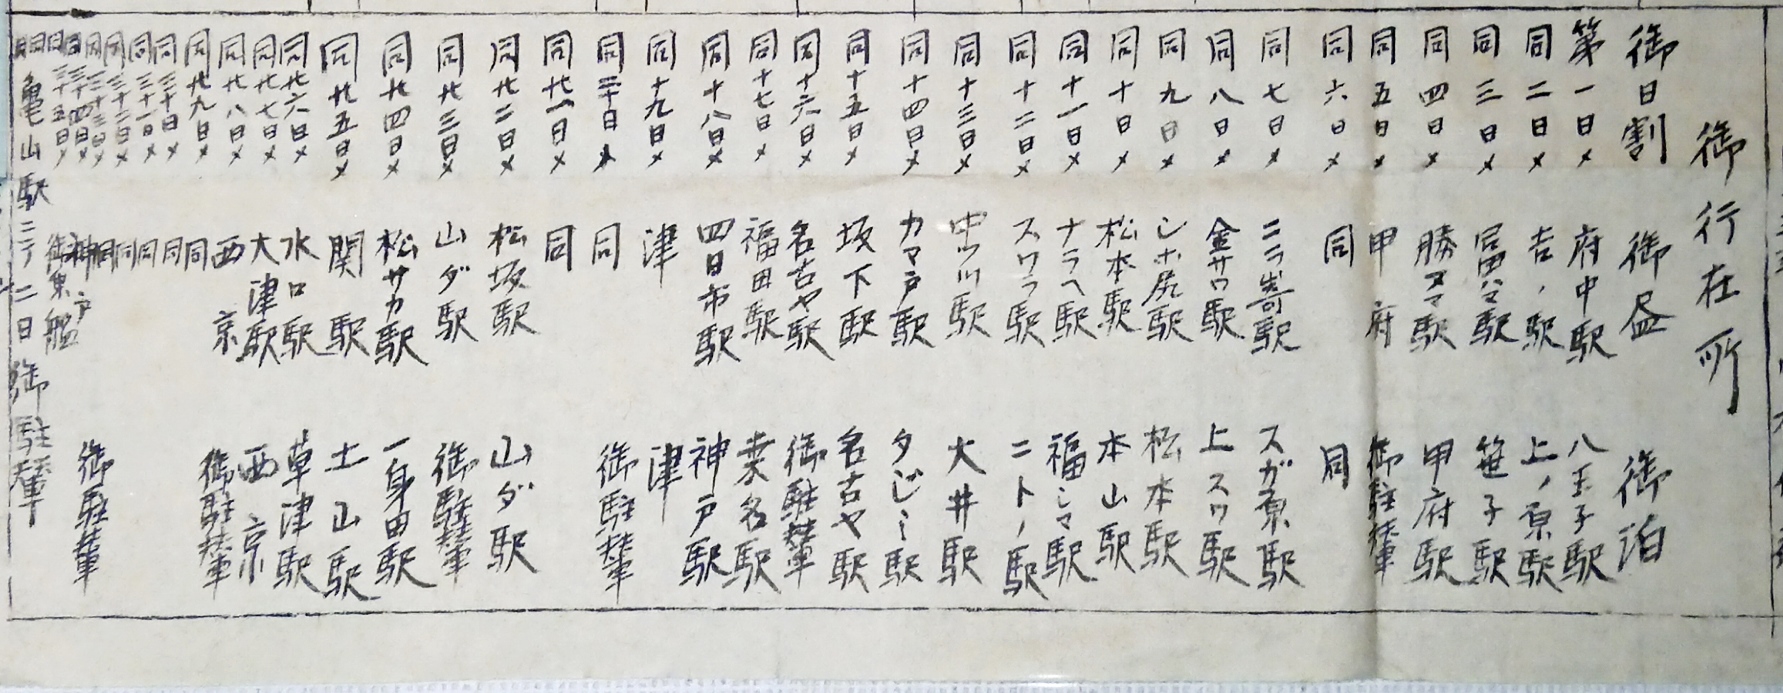 御行在所
御日割 御昼 御泊
第一日〆 府中駅 八王子駅
同二日〆 吉ノ駅 上ノ原駅
同三日〆 冨ハマ駅 笹子駅
同四日〆 勝ヌマ駅 甲府駅
同五日〆 甲府 御駐輦
同六日〆 同 同
同七日〆 ニラ嵜駅 スガ原駅
同八日〆 金サワ駅 上スワ駅
同九日〆 シホ尻駅 松本駅
同十日〆 松本駅 本山駅
同十一日〆 ナラヘ駅 福シマ駅
同十二日〆 スワラ駅 ニトノ駅
同十三日〆 中ツ川駅 大井駅
同十四日〆 カマ戸駅 タじミ駅
同十五日〆 坂下駅 名古ヤ駅
同十六日〆 名古ヤ駅 御駐輦
同十七日〆 福田駅 桒名駅
同十八日〆 四日市駅 神戸駅
同十九日〆 津 津
同二十日〆 同 御駐輦
同廿一日〆 同
同廿二日〆 松坂駅 山ダ駅
同廿三日〆 山ダ駅 御駐輦
同廿四日〆 松サカ駅 一身田駅
同廿五日〆 関駅 土山駅
同廿六日〆 水口駅 草津駅
同廿七日〆 大津駅 西京
同廿八日〆 西京 御駐輦
同廿九日〆 同
同三十日〆 同
同三十一日〆 同
同三十二日〆 同
同三十三日〆 同
同三十四日〆 神戸 御駐輦
同三十五日〆 御乗艦
亀山駅ニテ二日御駐輦